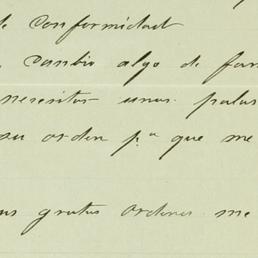 de conformidad
cambio algo de
necesitar unas palas
su orden p.ª que me
gratas ordenes me